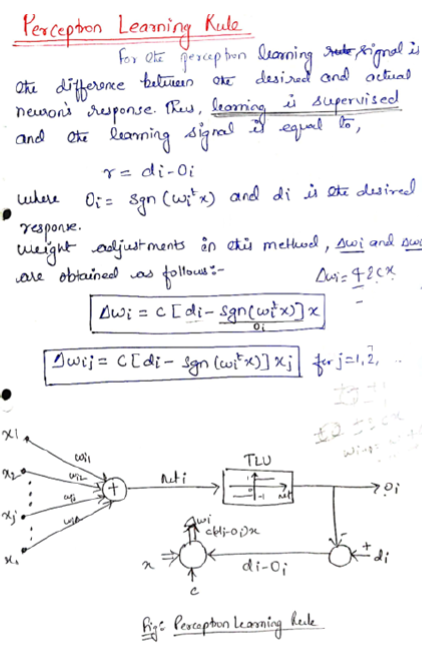 Perceptron Learning Rule
For the perceptron learning rule, signal is
the difference between the desired and actual
neuron's response. Thus, learning is supervised
and the learning signal is equal to,
r = di-Oi
where Oi = sgn (wiᵗx) and di is the desired
response.
Weight adjustments in this method, Δwi and Δwi
are obtained as follows:-
Δwi = ±2cx
Δwi = c [di - sgn(wiᵗx)] x
Oi
Δwij = c[di - sgn (wiᵗx)] xj for j=1,2, ..
x1
x2
xj
wi1
wi2
+
neti
TLU
1
-1
net
Oi
Δwi
c(di-oi)x
x
c
di-Oi
-
+
di
Fig: Perceptron Learning Rule